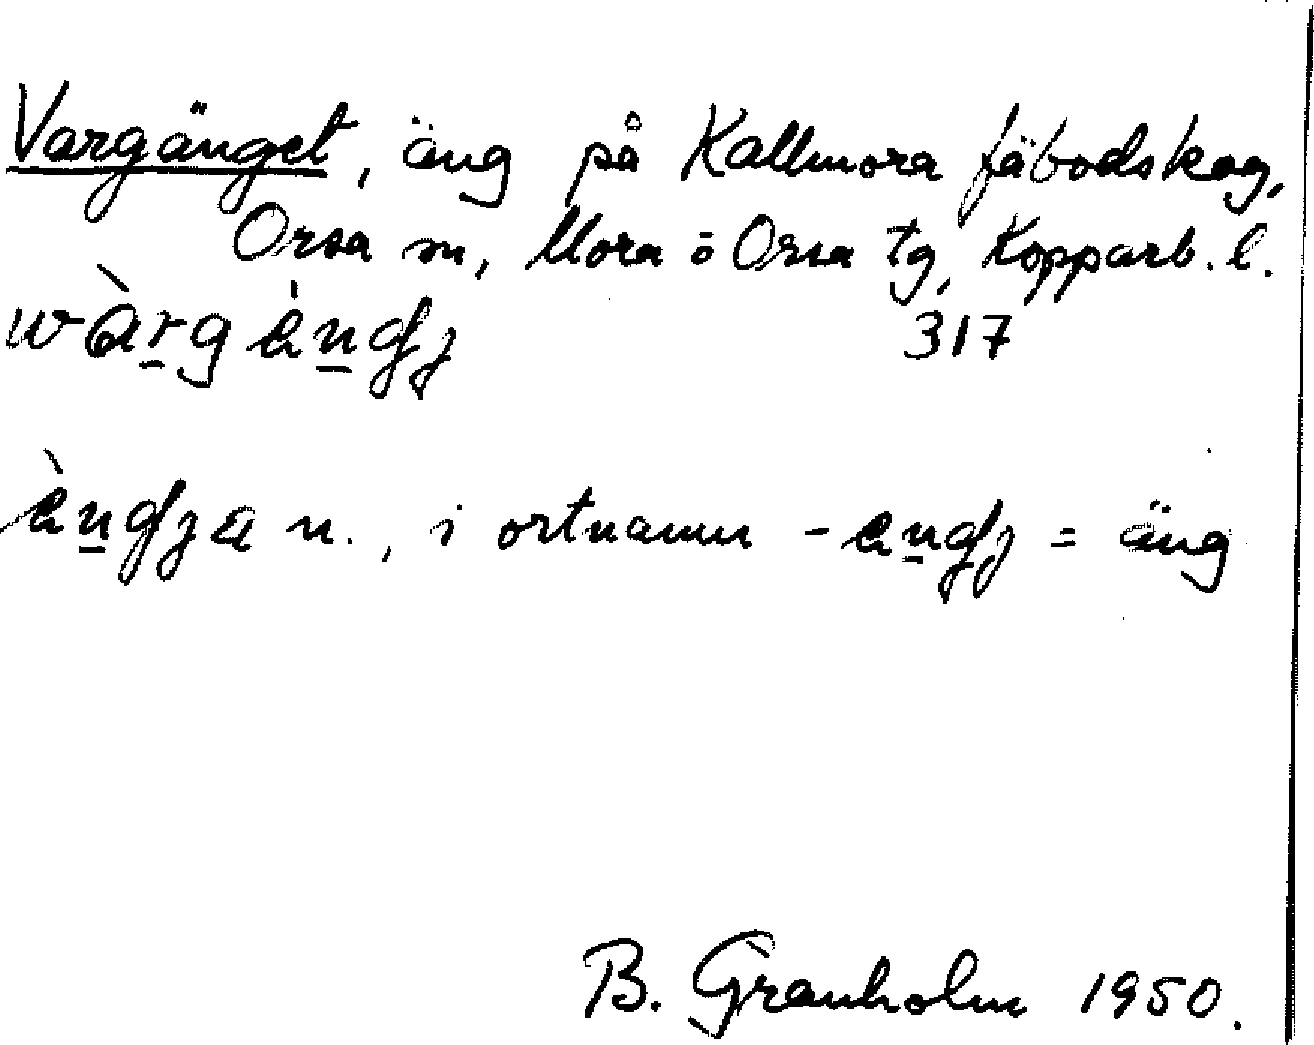 Vargänget, äng på Kallmora fäbodskog,
Orsa sn, Mora o Orsa tg, Kopparb. l.
wàrgèngʒ 317
èngʒa n., i ortnamn -engʒ = äng
B. Granholm 1950.